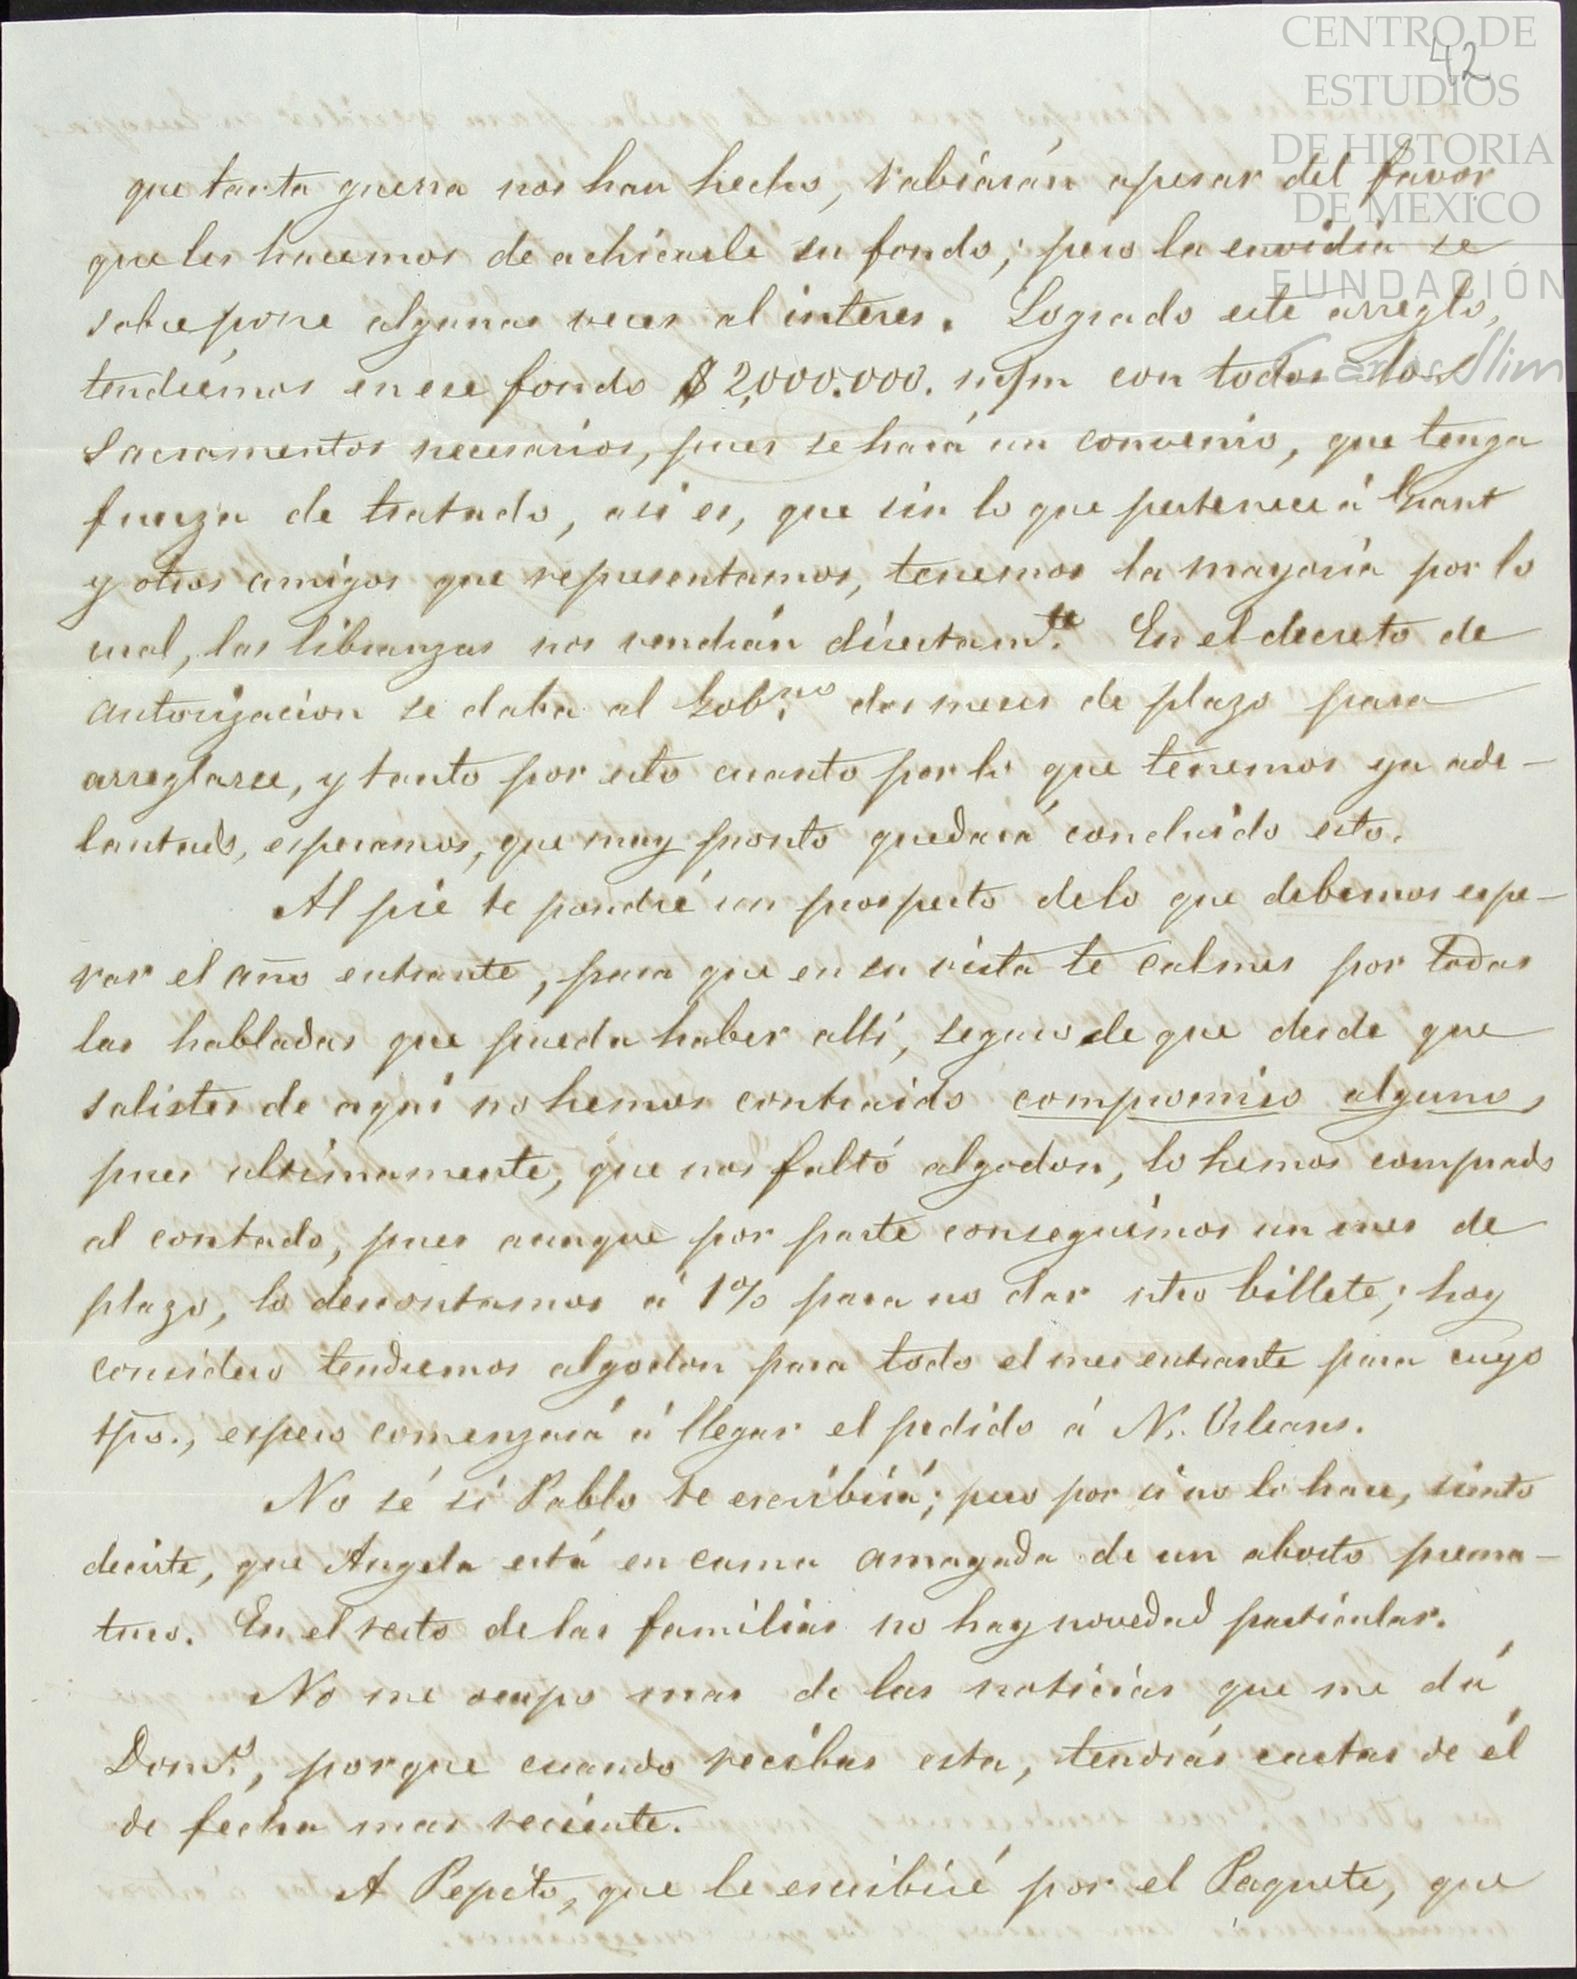 CENTRO DE
42
ESTUDIOS
DE HISTORIA
DE MEXICO
FUNDACIÓN
Carlos Slim
que tanta guerra nos han hecho, rabiarán apesar del favor
que les hacemos de achicarle su fondo; pero la envidia se
sobrepone algunas veces al interes. Logrado este arreglo,
tendrémos en ese fondo $2,000.000. m/m con todos los
Sacramentos necesarios, pues se hará un convenio, que tenga
fuerza de tratado, asi es, que sin lo que pertenece á Grant
y otros amigos que representamos, tenemos la mayoria por lo
cual, las libranzas nos vendrán directamte. En el decreto de
autorizacion se daba al Gobno. dos meses de plazo para
arreglarse, y tanto por esto cuanto por lo que tenemos ya ade-
lantado, esperamos, que muy pronto quedará concluido esto.
Al pie te pondré un prospecto delo que debemos espe-
rar el año entrante, para que en su vista te calmes por todas
las habladas que pueda haber allí, seguro de que desde que
salistes de aqui no hemos contraido compromiso alguno,
pues ultimamente, que nos faltó algodon, lo hemos comprado
al contado, pues aunque por parte conseguimos un mes de
plazo, lo descontamos á 1% para no dar ntro billete; hoy
considero tendremos algodon para todo el mes entrante para cuyo
tpo., espero comenzará á llegar el pedido á N. Orleans.
No sé si Pablo te escribirá; pero por si no lo hace, siento
decirte, que Angela está en cama amagada de un aborto prema-
turo. En el resto de las familias no hay novedad particular.
No me ocupo mas de las noticias que me dá
Domo., porque cuando recibas esta, tendrás cartas de él
de fecha mas reciente.
A Pepito, que le escribiré por el Paquete, que